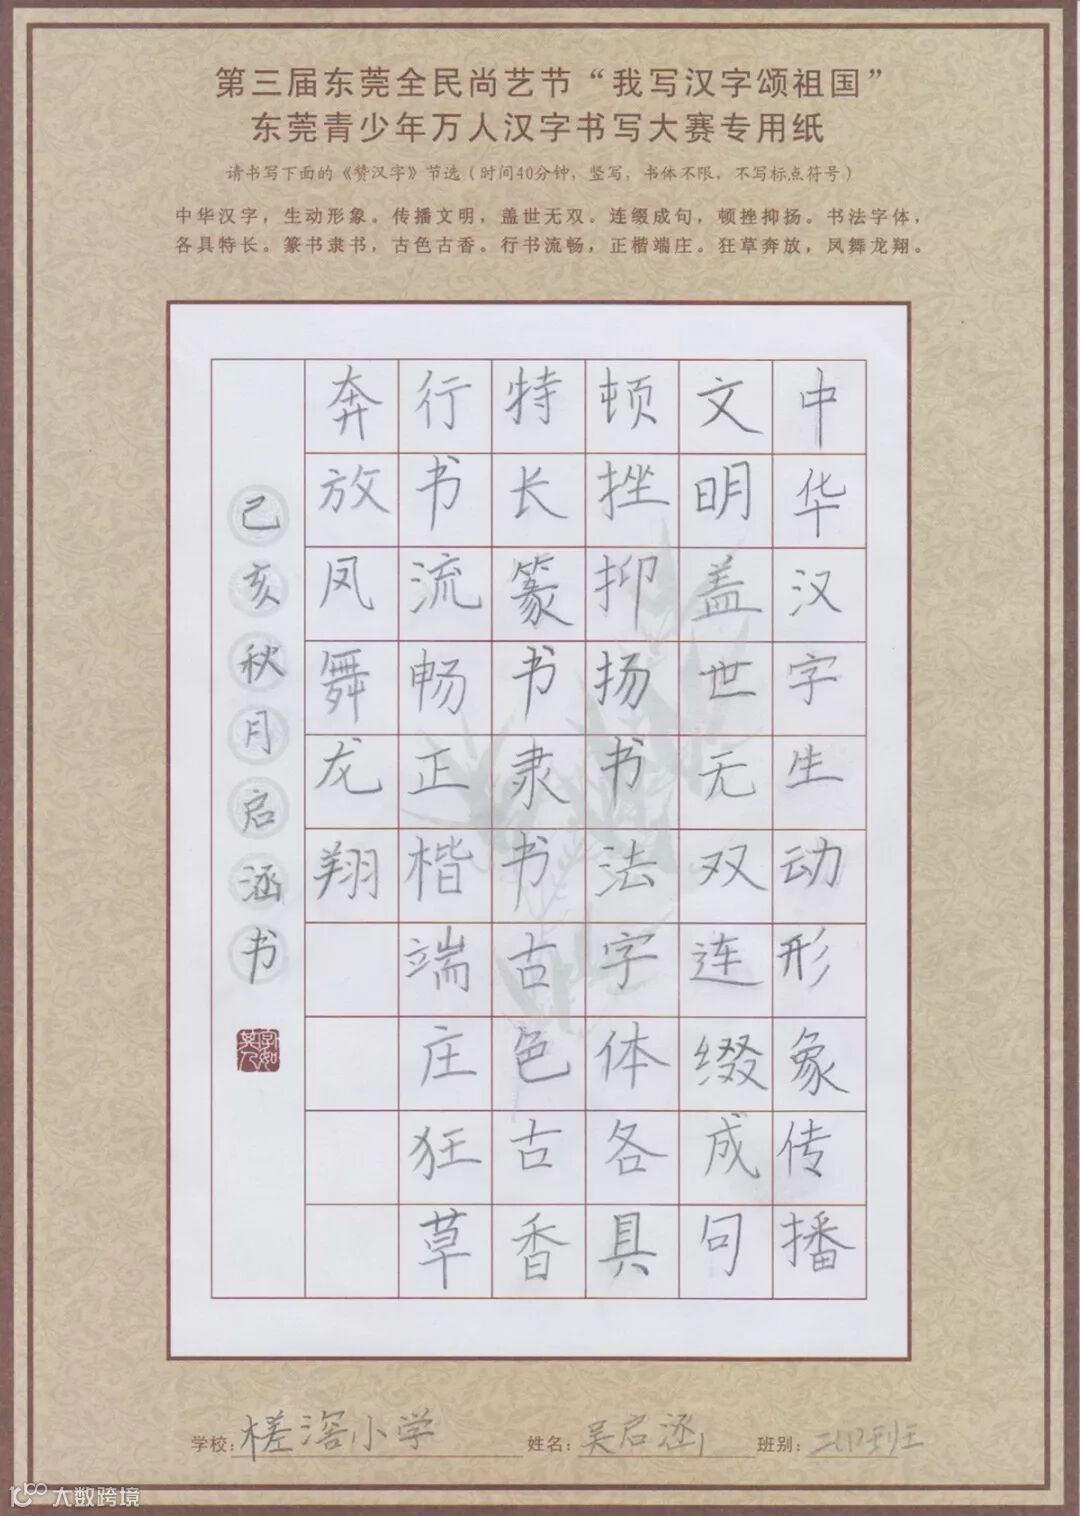 第三届东莞全民尚艺节“我写汉字颂祖国”
东莞青少年万人汉字书写大赛专用纸
请书写下面的《赞汉字》节选（时间40分钟，竖写，书体不限，不写标点符号）
中华汉字，生动形象。传播文明，盖世无双。连缀成句，顿挫抑扬。书法字体，
各具特长。篆书隶书，古色古香。行书流畅，正楷端庄。狂草奔放，凤舞龙翔。
中华汉字生动形象传播
文明盖世无双连缀成句
顿挫抑扬书法字体各具
特长篆书隶书古色古香
行书流畅正楷端庄狂草
奔放凤舞龙翔
己亥秋月启涵书
字如其人
学校：槎滘小学 姓名：吴启涵 班别：二(1)班
大数跨境